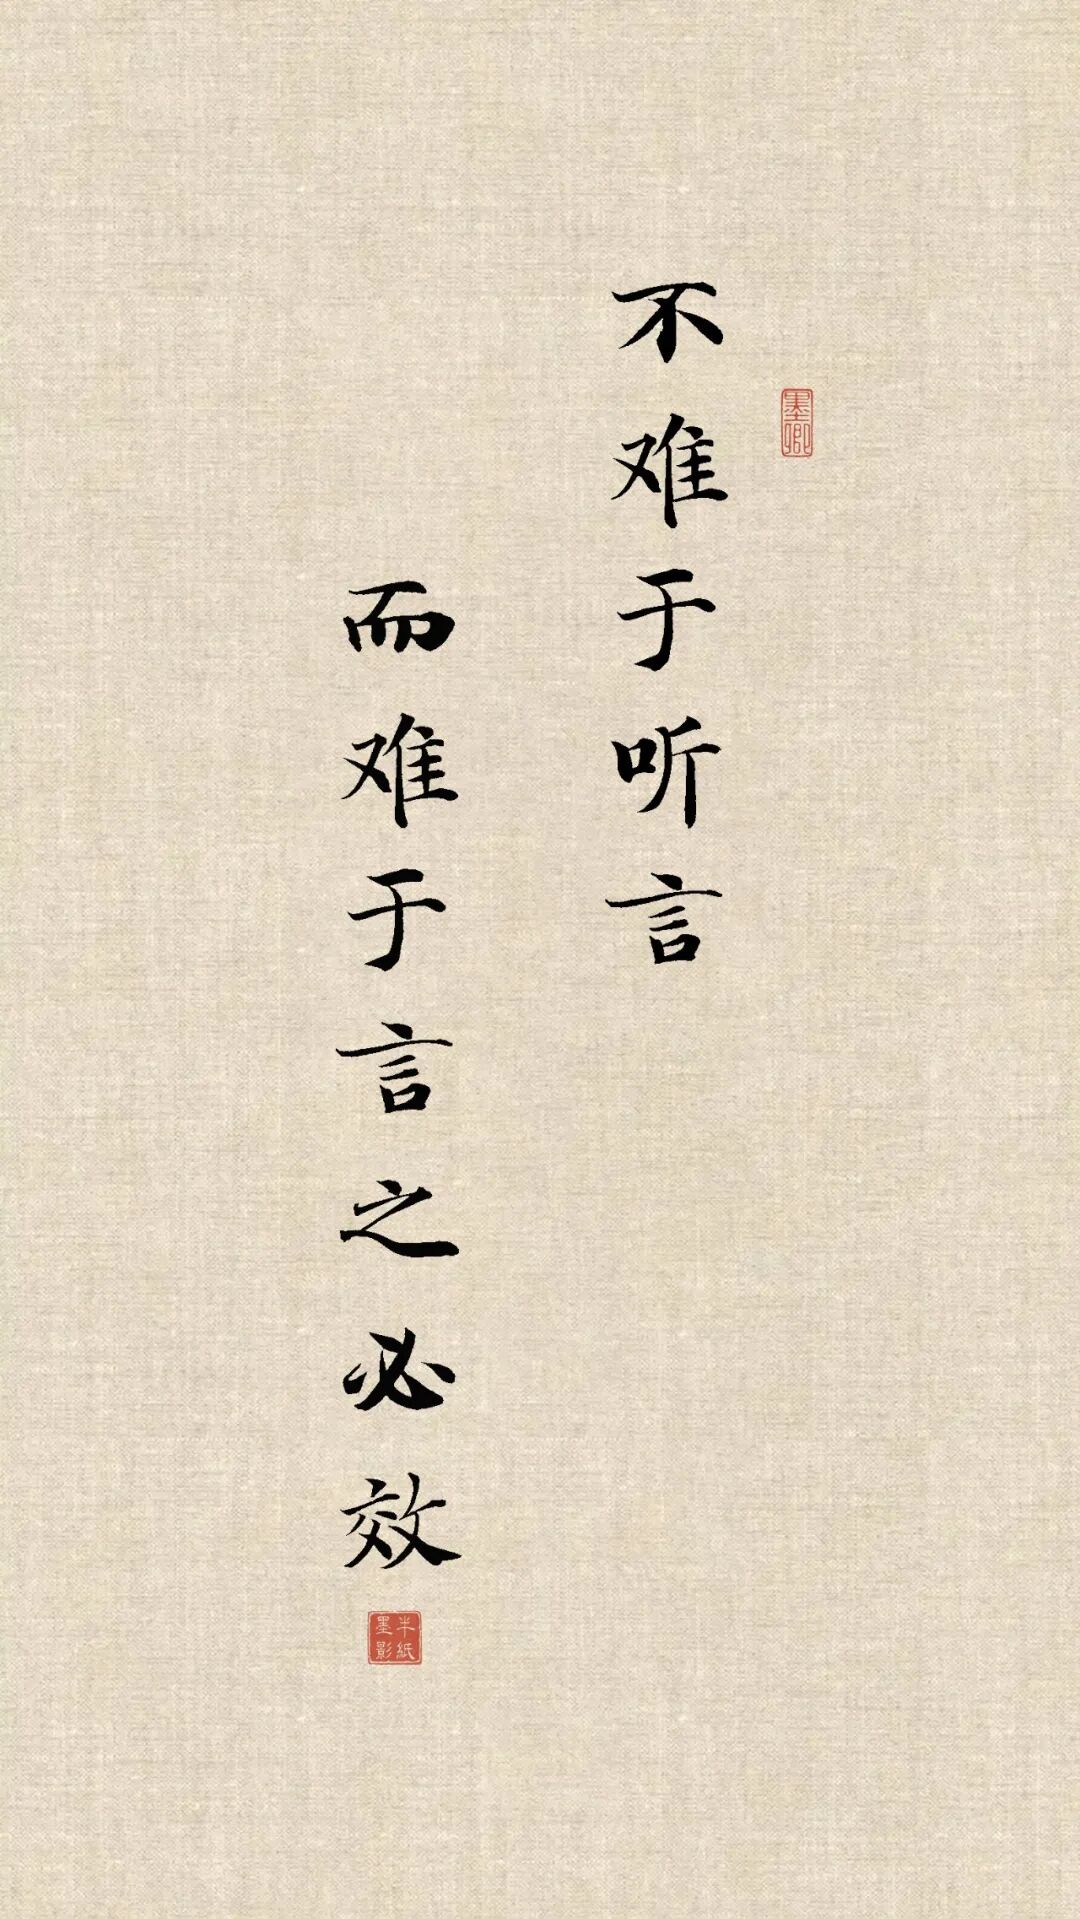 不难于听言
而难于言之必效
墨卿
半纸墨影